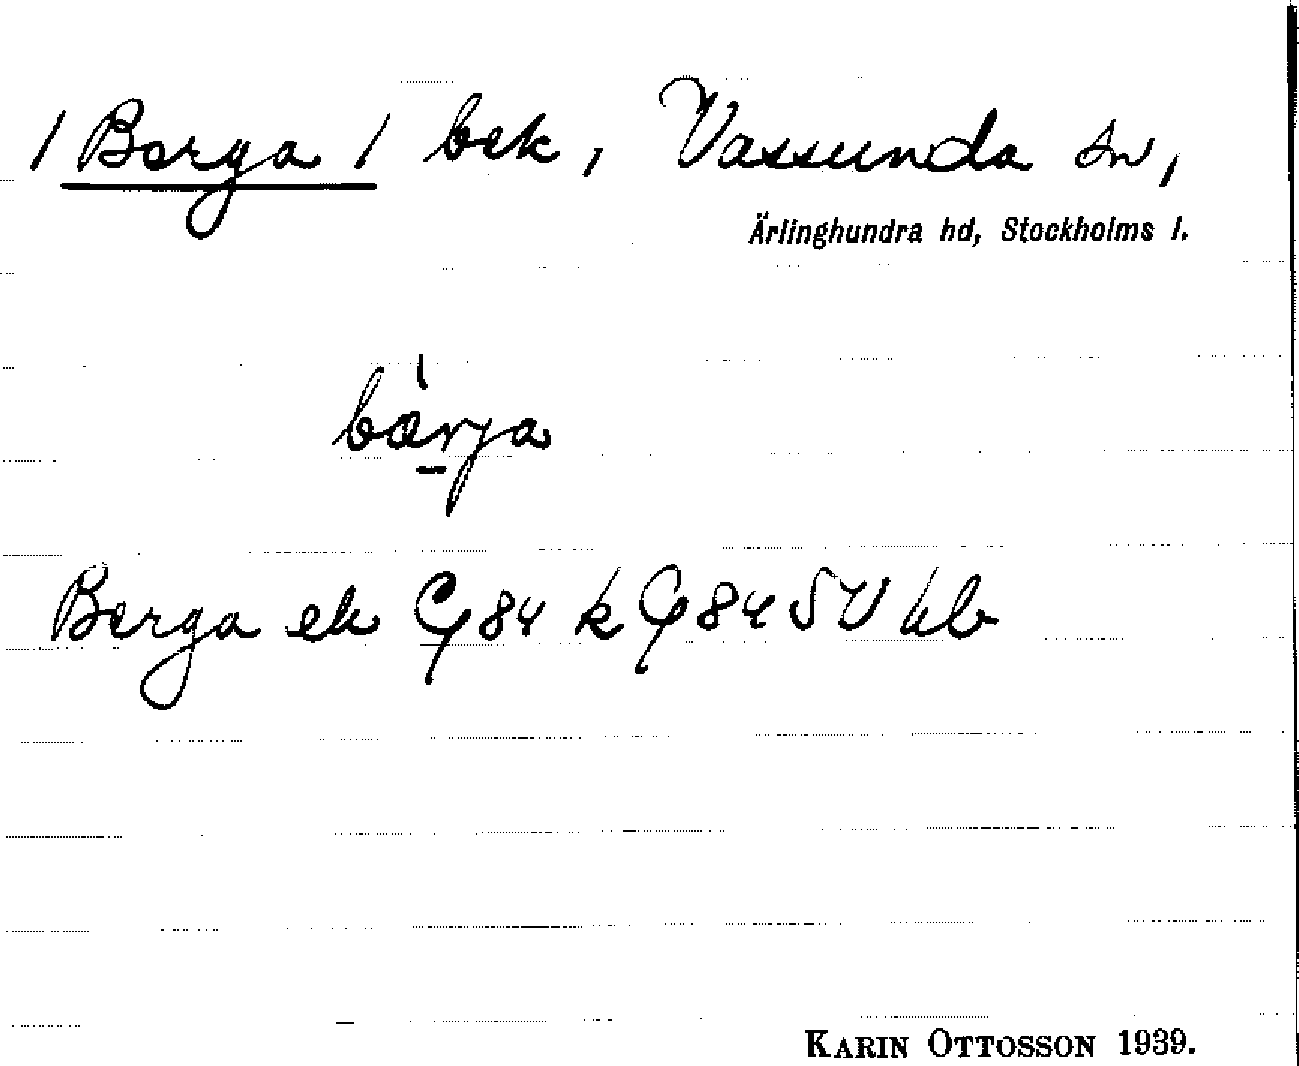 / Berga / bek, Vassunda sn,
Ärlinghundra hd, Stockholms l.
bærja
Berga ek G 84 k G 84 SV bb
KARIN OTTOSSON 1939.